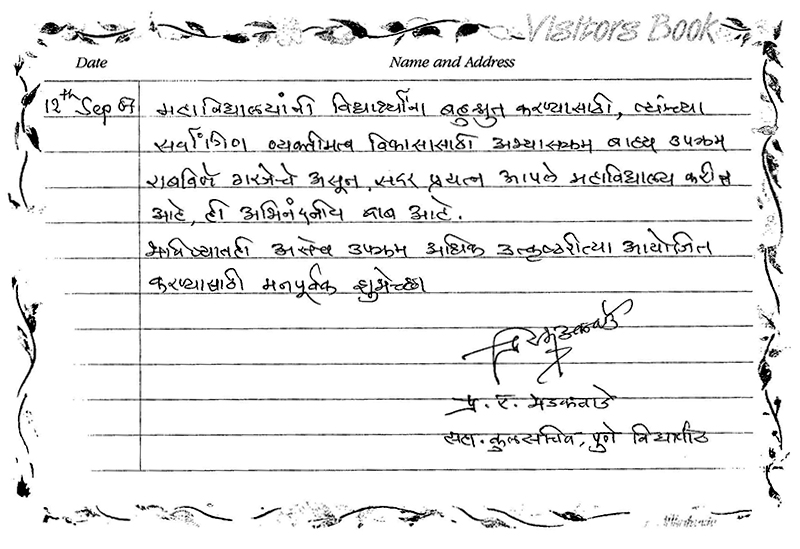 Visitors Book
Date Name and Address
12th Sep 07 महाविद्यालयांनी विद्यार्थ्यांना बहुश्रुत करण्यासाठी, त्यांच्या
सर्वांगिण व्यक्तीमत्व विकासासाठी अभ्यासक्रम बाह्य उपक्रम
राबविणे गरजेचे असून, सदर प्रयत्न आपले महाविद्यालय करीत
आहे, ही अभिनंदनीय बाब आहे.
भविष्यातही असेच उपक्रम अधिक उत्कृष्टरीत्या आयोजित
करण्यासाठी मनपूर्वक शुभेच्छा
प्र. र. भडकवाडे
सहा. कुलसचिव, पुणे विद्यापीठ